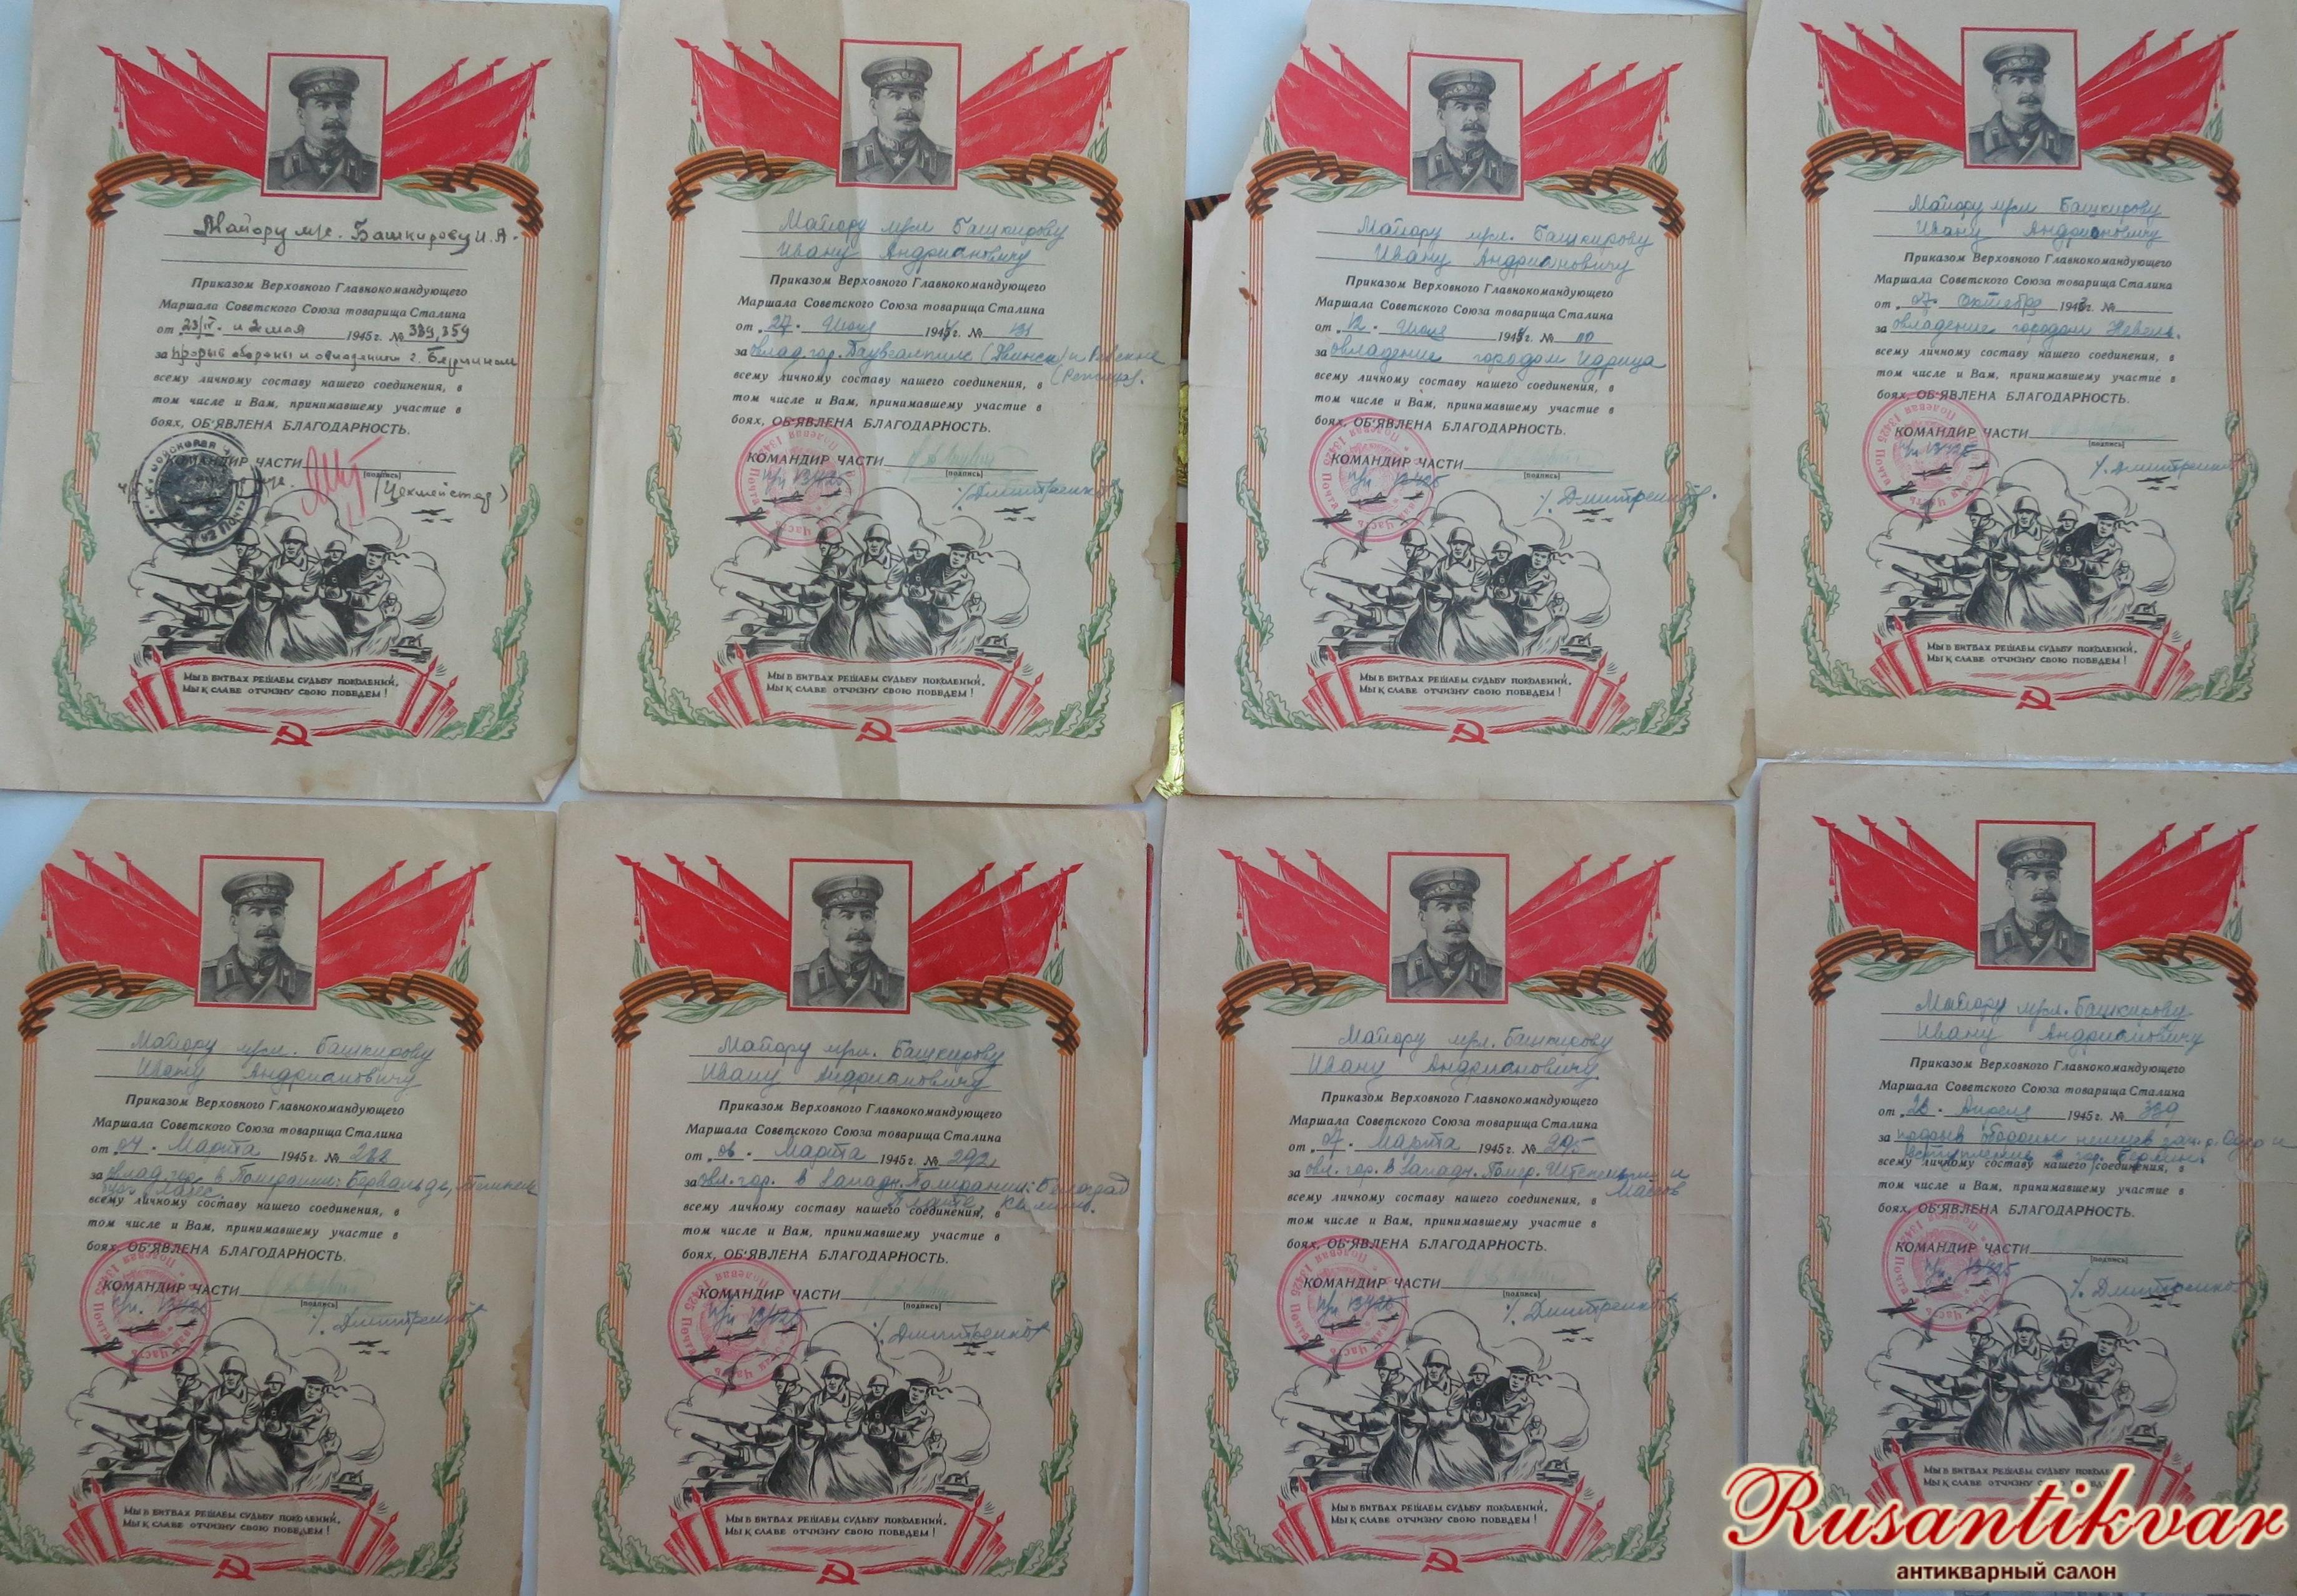 Майору м/с. Башкирову И.А.
Приказом Верховного Главнокомандующего
Маршала Советского Союза товарища Сталина
от „23/IV. и 2 мая 1945 г. № 339, 359
за прорыв обороны и овладении г. Берлином
всему личному составу нашего соединения, в
том числе и Вам, принимавшему участие в
боях, ОБ'ЯВЛЕНА БЛАГОДАРНОСТЬ.
КОМАНДИР ЧАСТИ
(подпись)
Мы в битвах решаем судьбу поколений,
Мы к славе отчизну свою поведем!
Майору Башкирову
Ивану Андриановичу
Приказом Верховного Главнокомандующего
Маршала Советского Союза товарища Сталина
от „27. Июля 1944 г. №
за овлад. гор. Даувгавпилс (Двинск) и
всему личному составу нашего соединения, в
том числе и Вам, принимавшему участие в
боях, ОБ'ЯВЛЕНА БЛАГОДАРНОСТЬ.
КОМАНДИР ЧАСТИ
(подпись)
п/п 13425
/. Дмитренков
Полевая Почта 13425 Часть
Мы в битвах решаем судьбу поколений,
Мы к славе отчизну свою поведем!
Майору Башкирову
Ивану Андриановичу
Приказом Верховного Главнокомандующего
Маршала Советского Союза товарища Сталина
от „12. Июля 1944 г. №
за овладение городом Идрица
всему личному составу нашего соединения, в
том числе и Вам, принимавшему участие в
боях, ОБ'ЯВЛЕНА БЛАГОДАРНОСТЬ.
КОМАНДИР ЧАСТИ
(подпись)
п/п 13425
/. Дмитренков.
Полевая Почта 13425 Часть
Мы в битвах решаем судьбу поколений,
Мы к славе отчизну свою поведем!
Майору Башкирову
Ивану Андриановичу
Приказом Верховного Главнокомандующего
Маршала Советского Союза товарища Сталина
от „07. Октября 1943 г. №
за овладение городом Невель.
всему личному составу нашего соединения, в
том числе и Вам, принимавшему участие в
боях, ОБ'ЯВЛЕНА БЛАГОДАРНОСТЬ.
КОМАНДИР ЧАСТИ
(подпись)
п/п 13425
/. Дмитренков
Полевая Почта 13425 Часть
Мы в битвах решаем судьбу поколений,
Мы к славе отчизну свою поведем!
Майору Башкирову
Ивану Андриановичу
Приказом Верховного Главнокомандующего
Маршала Советского Союза товарища Сталина
от „04. Марта 1945 г. № 288
за овлад. гор. в Померании: Бервальде,
всему личному составу нашего соединения, в
том числе и Вам, принимавшему участие в
боях, ОБ'ЯВЛЕНА БЛАГОДАРНОСТЬ.
КОМАНДИР ЧАСТИ
(подпись)
п/п 13425
/. Дмитренков
Полевая Почта 13425 Часть
Мы в битвах решаем судьбу поколений,
Мы к славе отчизну свою поведем!
Майору Башкирову
Ивану Андриановичу
Приказом Верховного Главнокомандующего
Маршала Советского Союза товарища Сталина
от „06. Марта 1945 г. № 292
за овл. гор. в западн. Померании: Белград
всему личному составу нашего соединения, в
том числе и Вам, принимавшему участие в
боях, ОБ'ЯВЛЕНА БЛАГОДАРНОСТЬ.
КОМАНДИР ЧАСТИ
(подпись)
п/п 13425
/. Дмитренков
Полевая Почта 13425 Часть
Мы в битвах решаем судьбу поколений,
Мы к славе отчизну свою поведем!
Майору Башкирову
Ивану Андриановичу
Приказом Верховного Главнокомандующего
Маршала Советского Союза товарища Сталина
от „07. Марта 1945 г. № 295
за овл. гор. в западн. Помер. и
Массов
всему личному составу нашего соединения, в
том числе и Вам, принимавшему участие в
боях, ОБ'ЯВЛЕНА БЛАГОДАРНОСТЬ.
КОМАНДИР ЧАСТИ
(подпись)
п/п 13425
/. Дмитренков
Полевая Почта 13425 Часть
Мы в битвах решаем судьбу поколений,
Мы к славе отчизну свою поведем!
Майору Башкирову
Ивану Андриановичу
Приказом Верховного Главнокомандующего
Маршала Советского Союза товарища Сталина
от Апреля 1945 г. № 339
за прорыв обороны немцев зап. р. Одер и
вступление в гор. Берлин.
всему личному составу нашего соединения, в
том числе и Вам, принимавшему участие в
боях, ОБ'ЯВЛЕНА БЛАГОДАРНОСТЬ.
КОМАНДИР ЧАСТИ
(подпись)
п/п 13425
/. Дмитренков
Полевая Почта 13425 Часть
Мы в битвах решаем судьбу
Мы к славе отчизну
Rusantikvar
антикварный салон